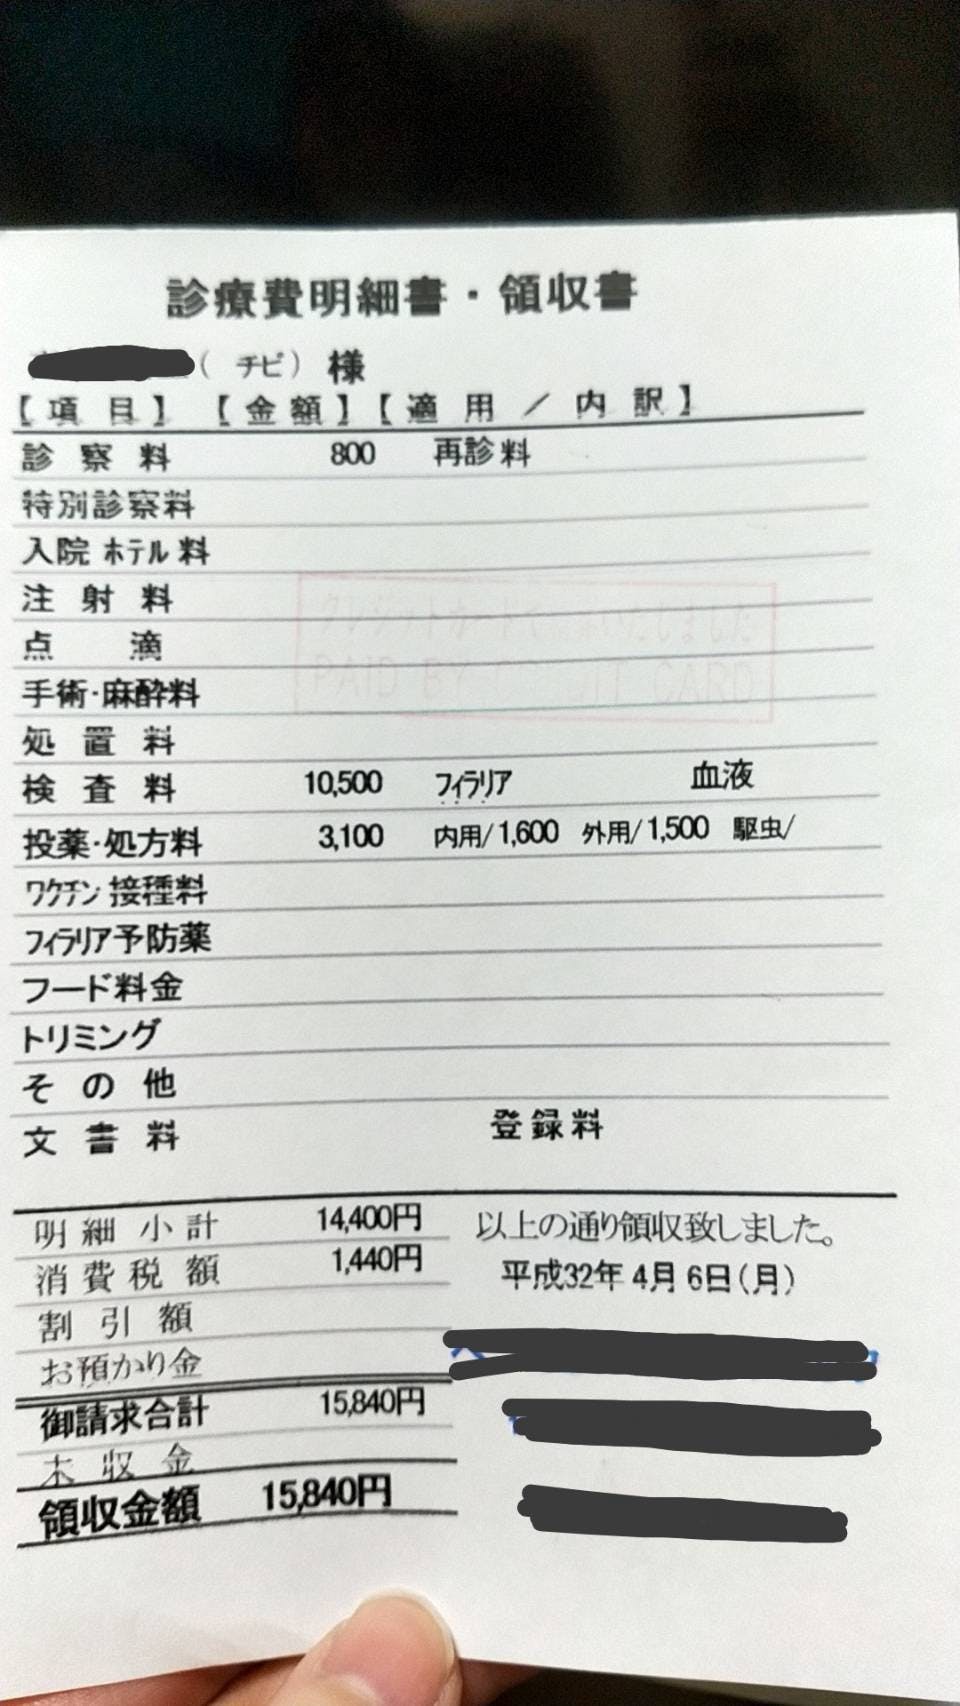 診療費明細書・領収書
(チビ) 様
【項目】 【金額】 【適用／内訳】
診察料 800 再診料
特別診察料
入院 ホテル料
注射料
点滴
クレジットカードで いたしました
PAID BY CREDIT CARD
手術・麻酔料
処置料
検査料 10,500 フィラリア 血液
投薬・処方料 3,100 内用/1,600 外用/1,500 駆虫/
ワクチン接種料
フィラリア予防薬
フード料金
トリミング
その他
文書料 登録料
明細小計 14,400円 以上の通り領収致しました。
消費税額 1,440円 平成32年 4月 6日(月)
割引額
お預かり金
御請求合計 15,840円
未収金
領収金額 15,840円